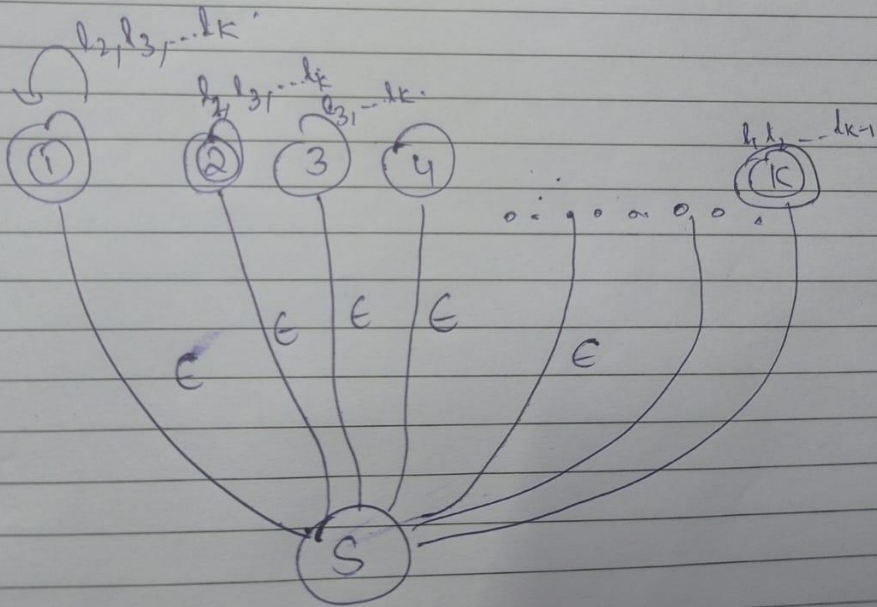 l2, l3, ... lK
l2, l3, ... lK
l3, ... lK.
l1 l2 ... lK-1
1 2 3 4 K
ϵ ϵ ϵ ϵ
ϵ
S